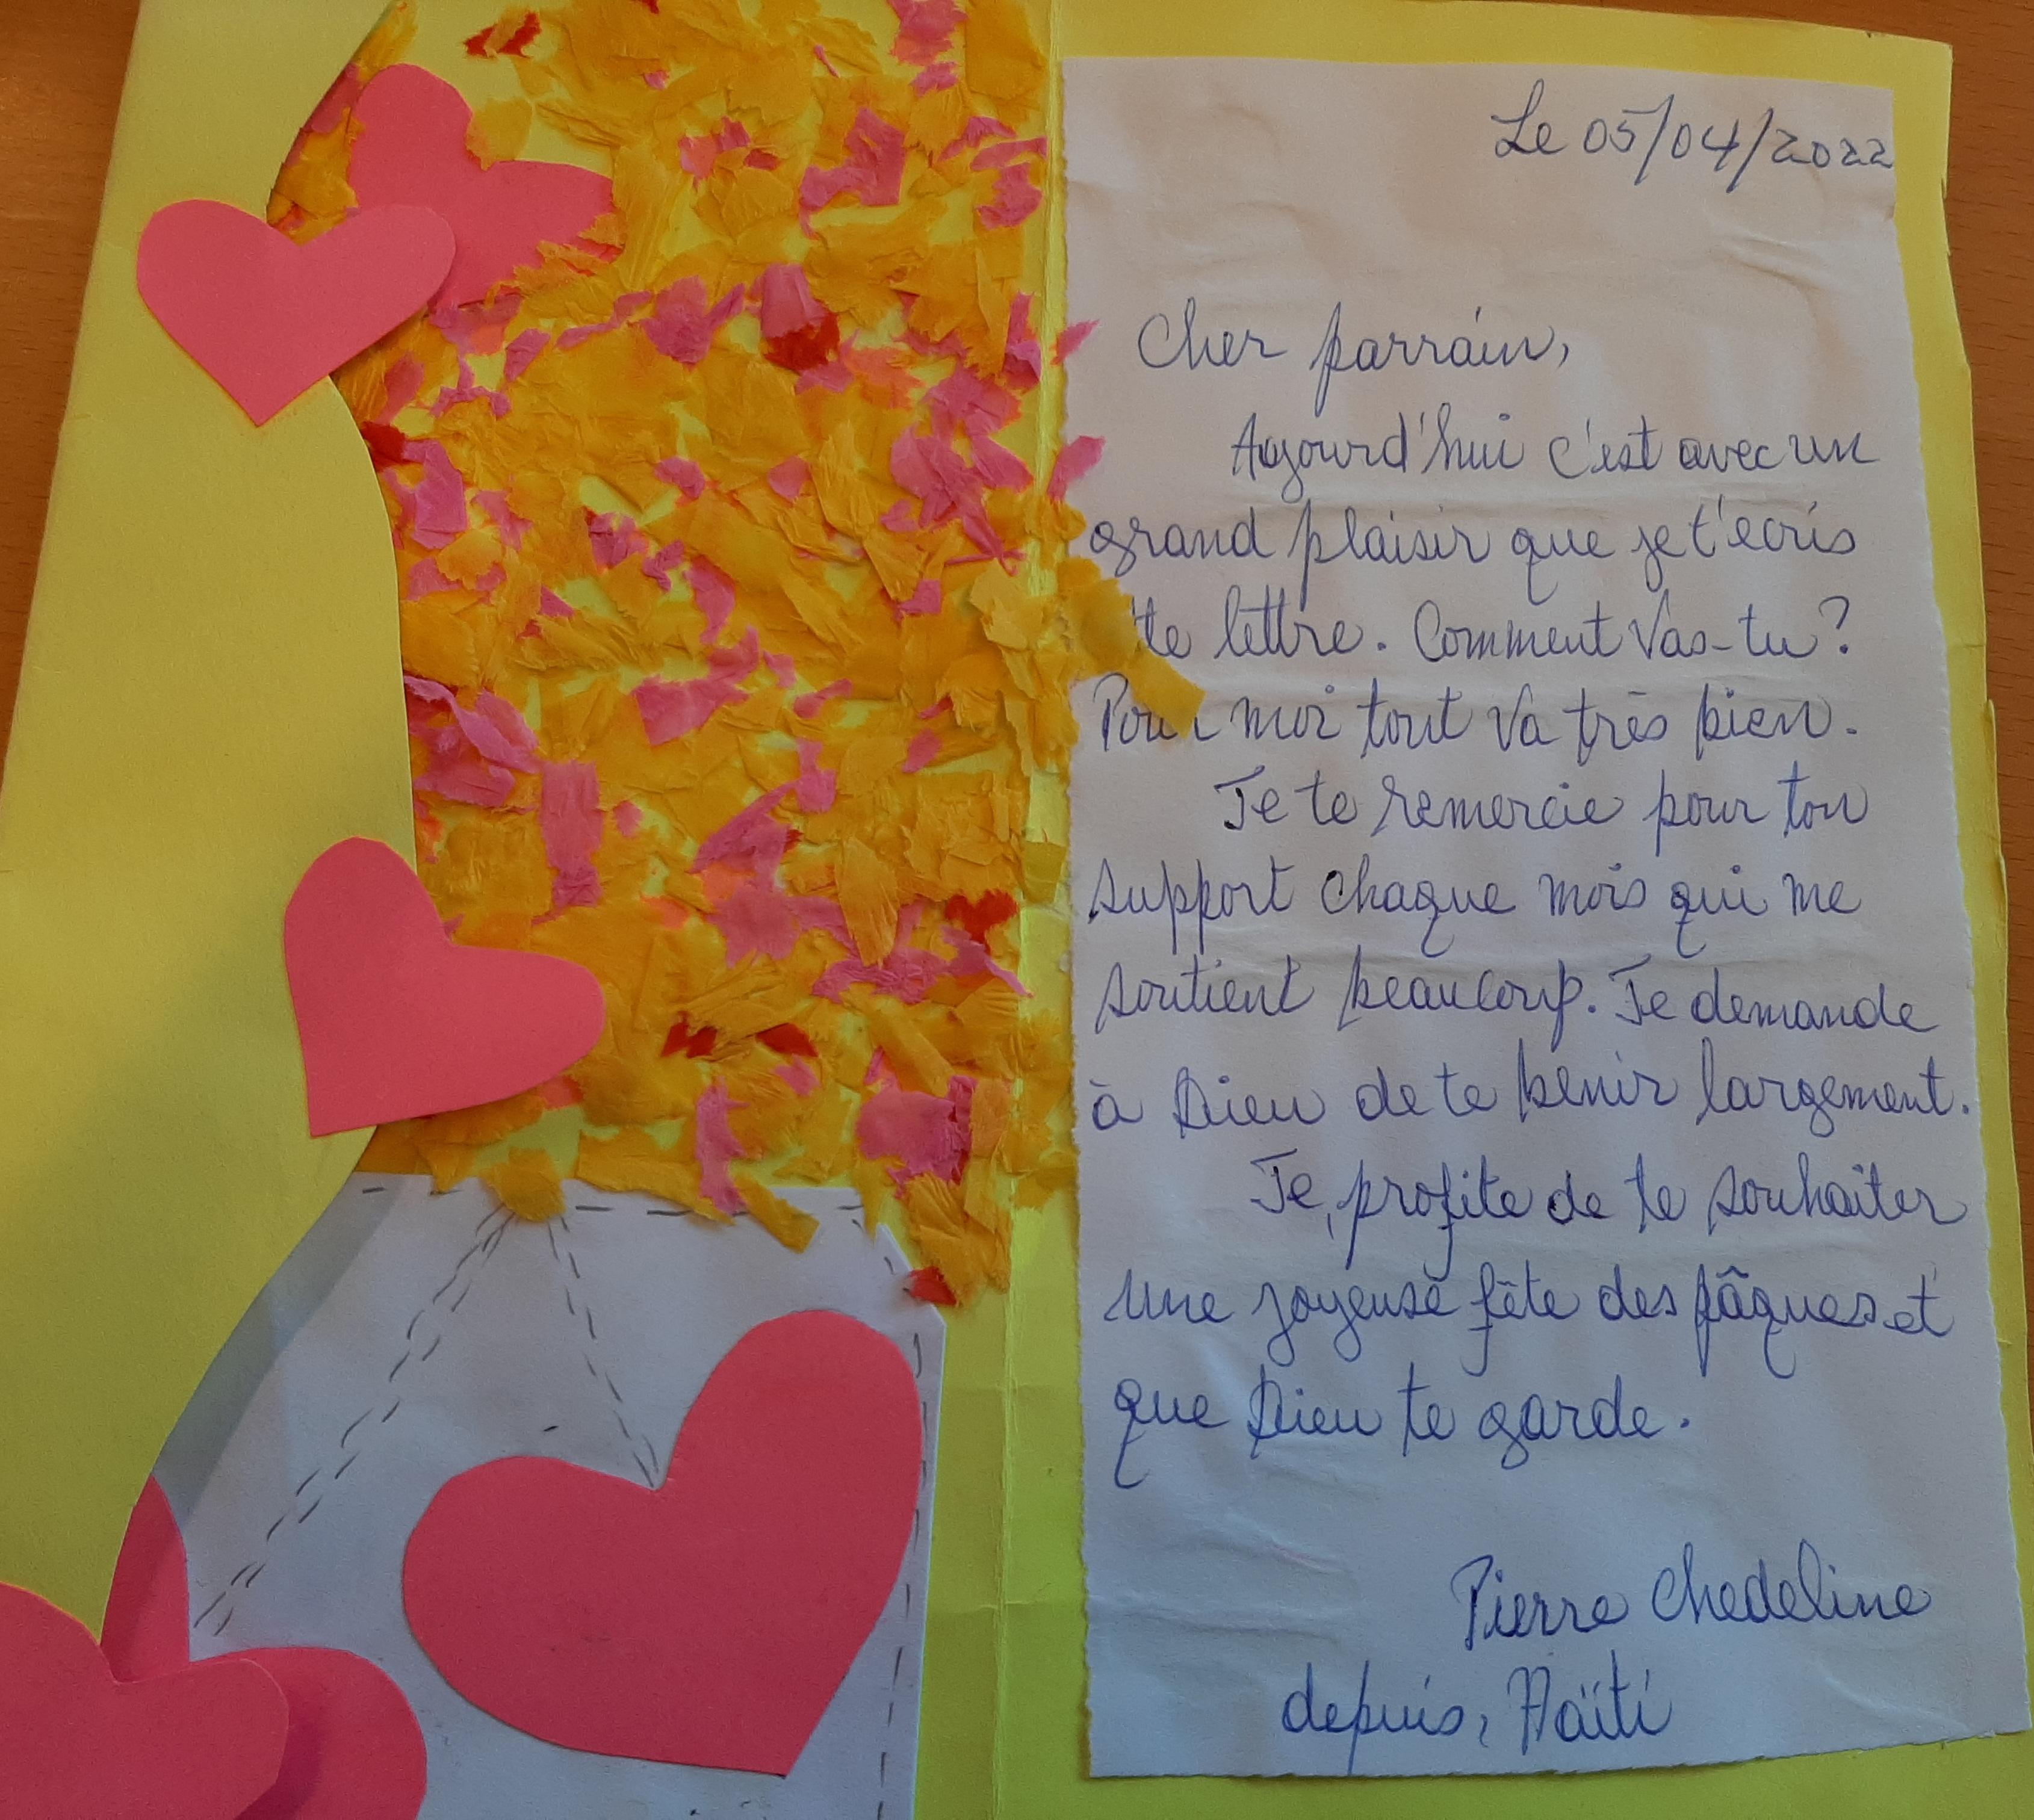 Le 05/04/2022
Cher parrain,
Aujourd'hui c'est avec un
grand plaisir que je t'écris
te lettre. Comment vas-tu?
Pour moi tout va très bien.
Je te remercie pour ton
support chaque mois qui me
soutient beaucoup. Je demande
à Dieu de te bénir largement.
Je, profite de te souhaiter
une joyeuse fête des pâques et
que Dieu te garde.
Pierre Chedeline
depuis, Haïti